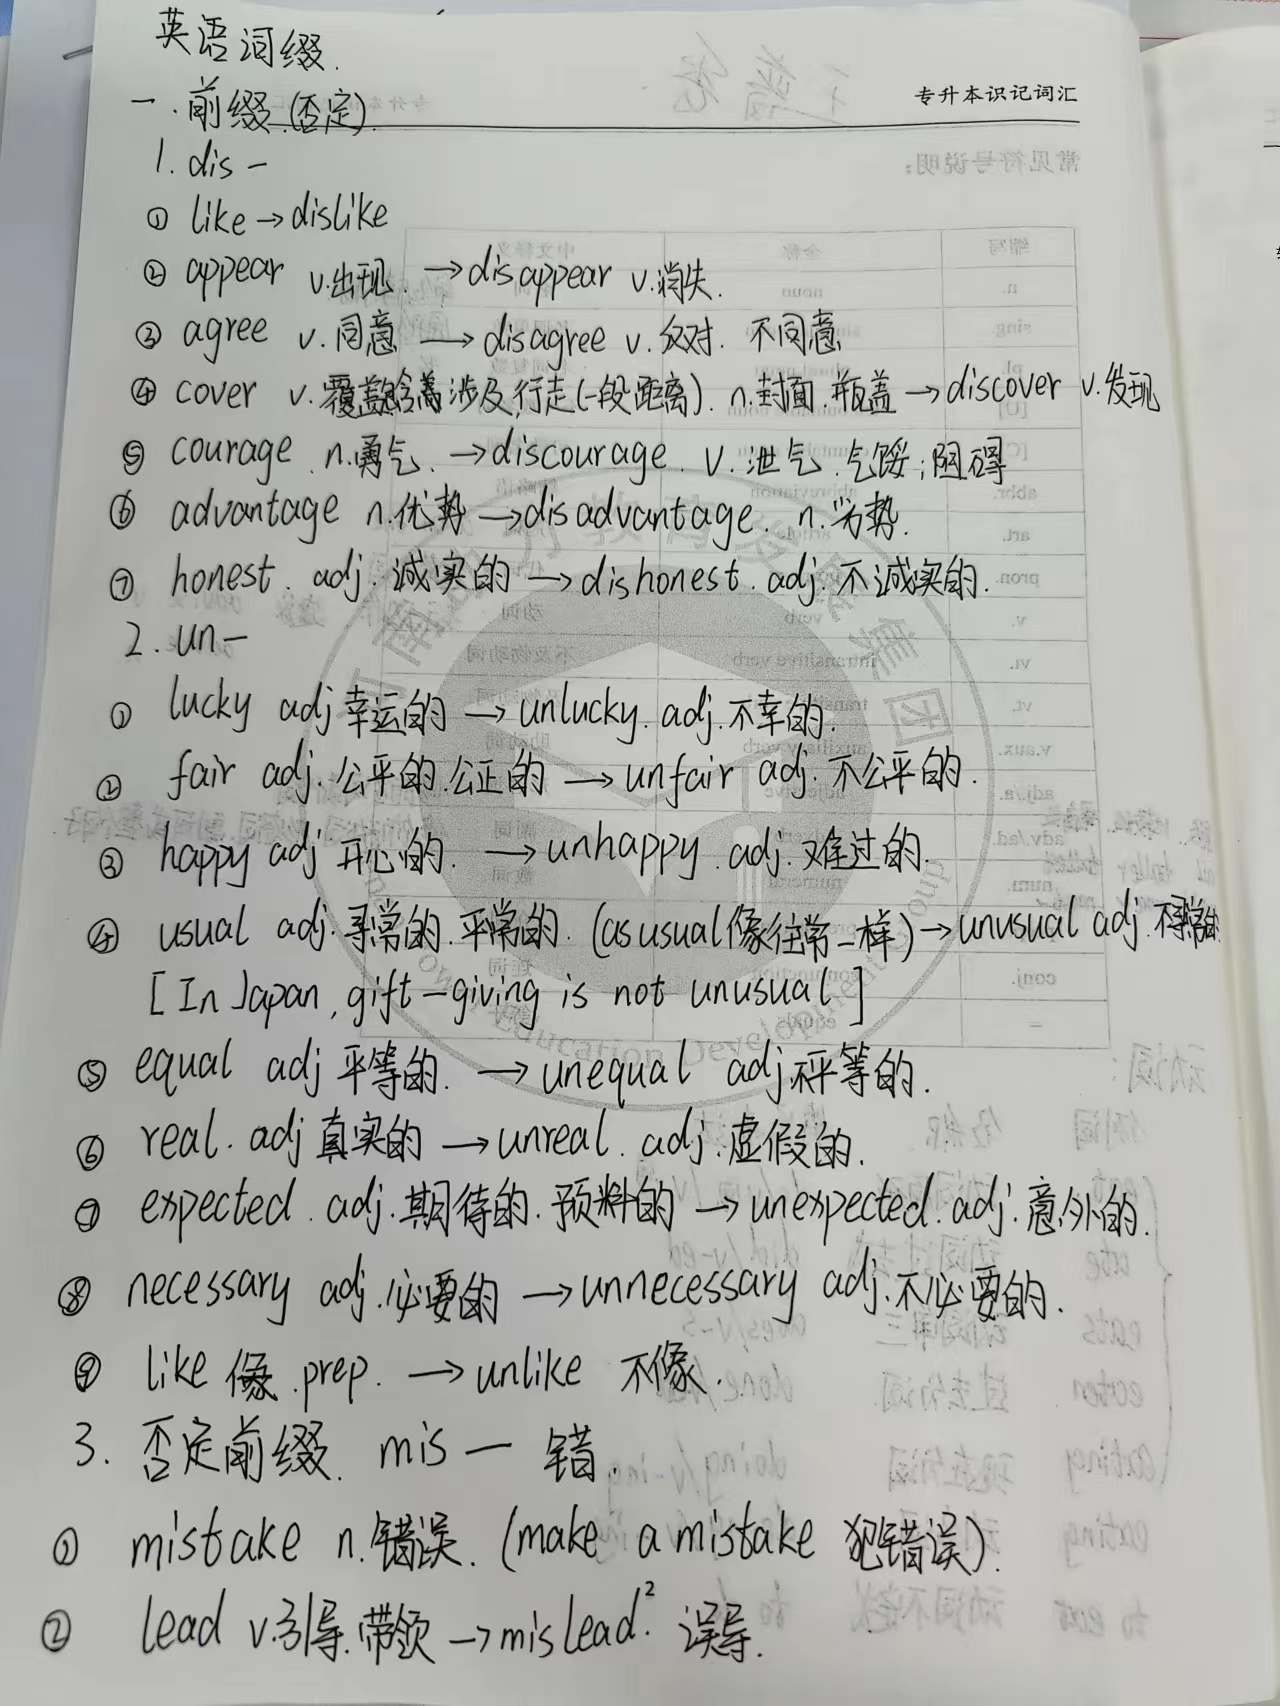 英语词缀.
专升本识记词汇
一.前缀.(否定).
1. dis-
① like→dislike
② appear v.出现. →disappear v.消失.
③ agree v.同意 →disagree v.反对. 不同意
④ cover v.覆盖 涉及,行走(一段距离). n.封面.瓶盖→discover v.发现
⑤ courage n.勇气. →discourage. v.泄气.气馁;阻碍
⑥ advantage n.优势→disadvantage. n.劣势.
⑦ honest. adj.诚实的→dishonest. adj.不诚实的.
2. un-
① lucky adj幸运的→unlucky. adj.不幸的.
② fair adj.公平的.公正的→unfair adj.不公平的.
③ happy adj开心的. →unhappy adj.难过的.
④ usual adj.寻常的.平常的. (as usual像往常一样)→unusual adj.不寻常的
[In Japan, gift-giving is not unusual]
⑤ equal adj平等的. →unequal adj不平等的.
⑥ real. adj真实的→unreal. adj.虚假的.
⑦ expected. adj.期待的.预料的→unexpected. adj.意外的.
⑧ necessary adj.必要的→unnecessary adj.不必要的.
⑨ like像.prep. →unlike 不像.
3. 否定前缀. mis- 错.
① mistake n.错误. (make a mistake 犯错误).
② lead v.引导.带领→mislead². 误导.